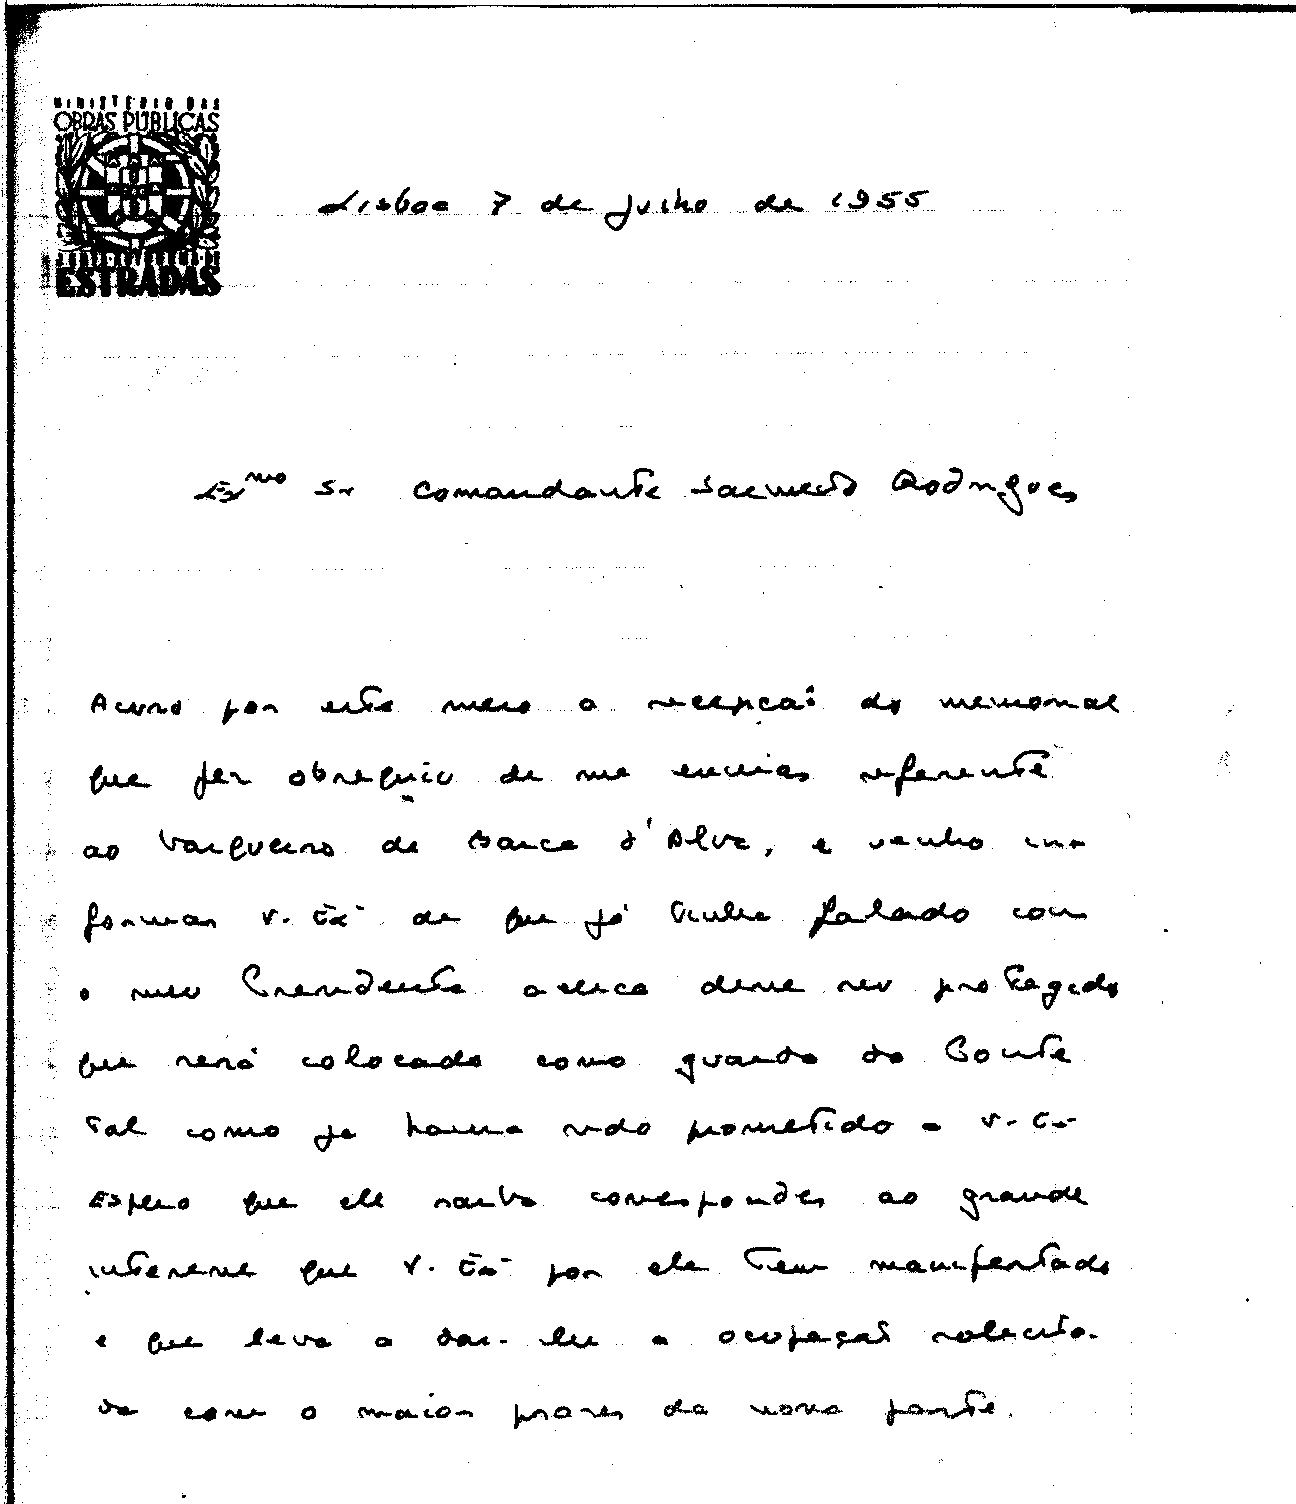 MINISTÉRIO DAS
OBRAS PÚBLICAS
ESTRADAS
Lisboa 7 de Julho de 1955
Exmo Sr Comandante Sarmento Rodrigues
Acuso por este meio a recepção do memorial
que fez obsequio de me enviar referente
ao barqueiro de Barca d'Alva, e venho in-
formar V. Exª de que já tinha falado com
o meu Presidente acerca desse seu protegido
que será colocado como guarda da Ponte
tal como já havia sido prometido a V. Exª
Espero que ele saiba corresponder ao grande
interesse que V. Exª por ele tem manifestado
e que leva a dar-lhe a ocupação solicita-
da com o maior prazer da nossa parte.